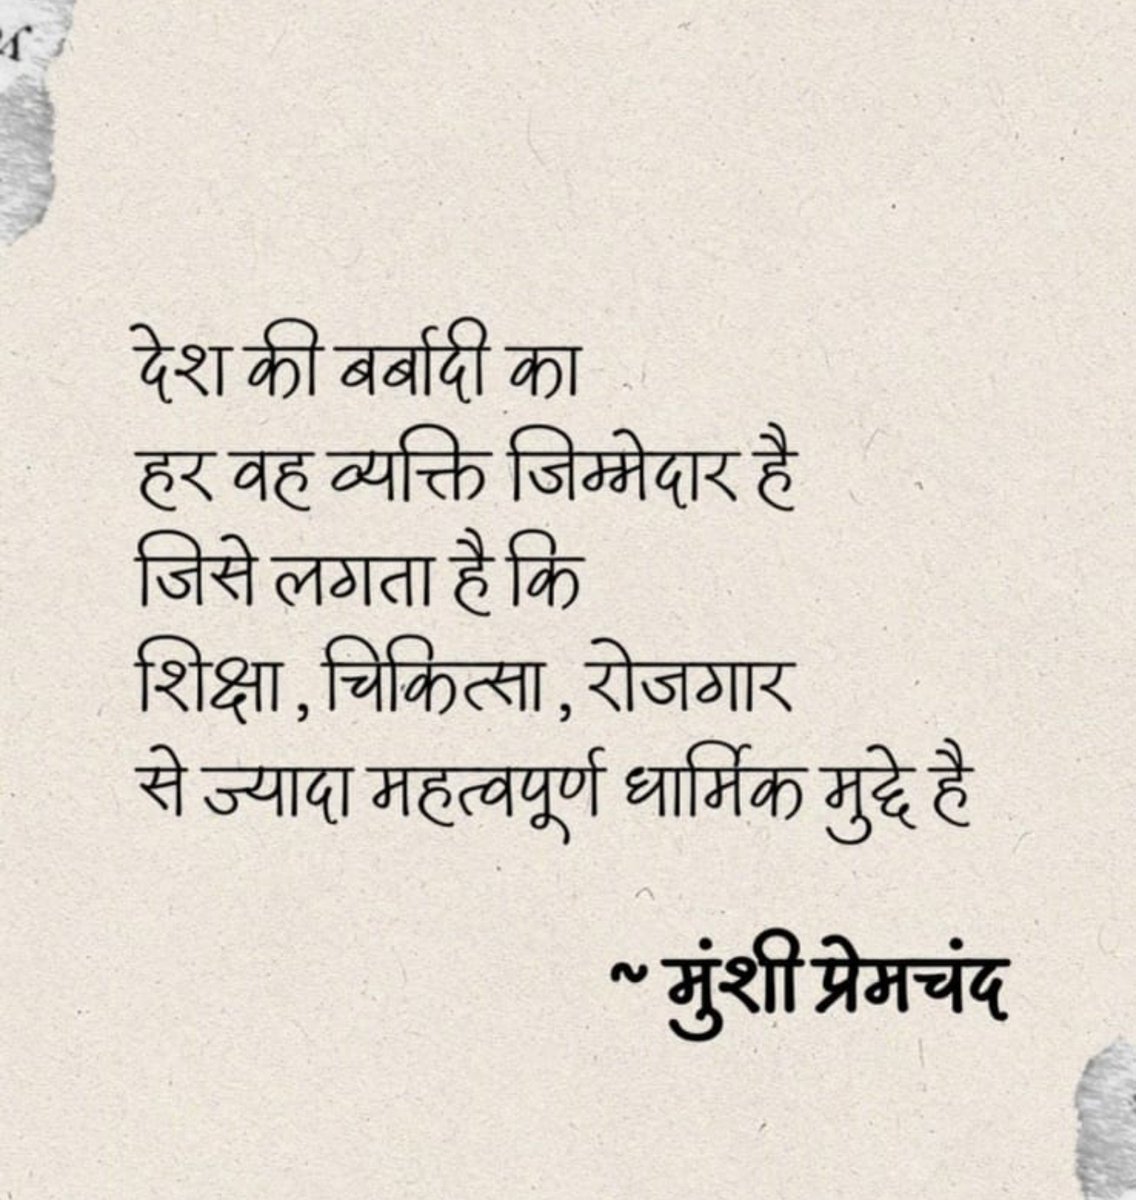 देश की बर्बादी का
हर वह व्यक्ति जिम्मेदार है
जिसे लगता है कि
शिक्षा, चिकित्सा, रोजगार
से ज्यादा महत्वपूर्ण धार्मिक मुद्दे है
~ मुंशी प्रेमचंद